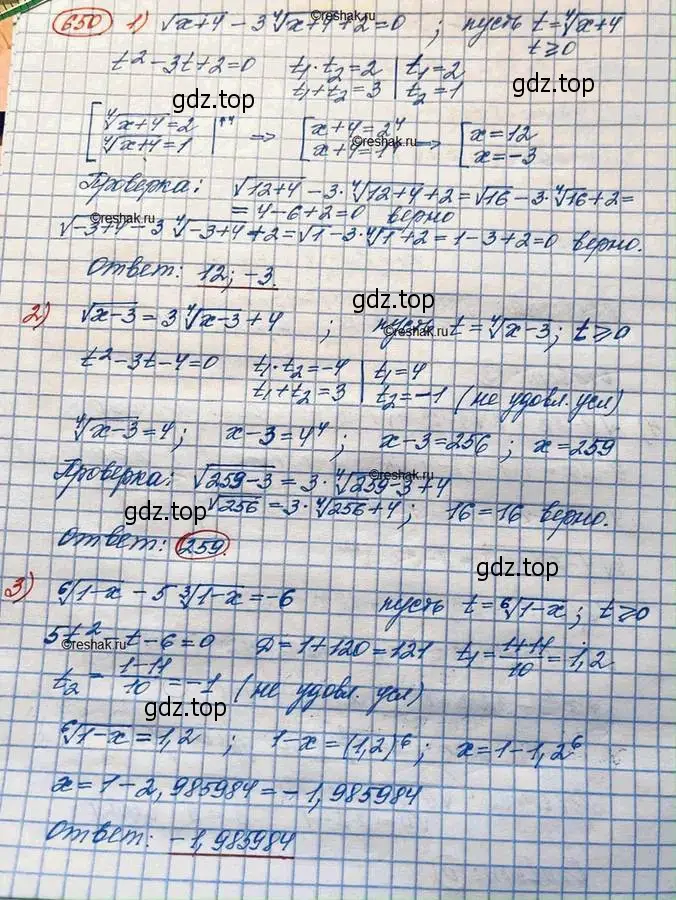 650 1) √x+4 − 3 ⁴√x+4 + 2 = 0 ; пусть t = ⁴√x+4
t ≥ 0
t² − 3t + 2 = 0 t₁ · t₂ = 2 | t₁ = 2
t₁ + t₂ = 3 | t₂ = 1
gdz.top
gdz.top
[ ⁴√x+4 = 2 |↑⁴ ⇒ [ x+4 = 2⁴ ⇒ [ x = 12
⁴√x+4 = 1 x+4 = 1⁴ x = −3
©reshak.ru
Проверка: √12+4 − 3 · ⁴√12+4 + 2 = √16 − 3 · ⁴√16 + 2 =
= 4 − 6 + 2 = 0 верно
©reshak.ru
√−3+4 − 3 ⁴√−3+4 + 2 = √1 − 3 · ⁴√1 + 2 = 1 − 3 + 2 = 0 верно.
Ответ: 12; −3.
gdz.top
2) √x−3 = 3 ⁴√x−3 + 4 ; пусть t = ⁴√x−3 ; t ≥ 0
©reshak.ru
t² − 3t − 4 = 0 t₁ · t₂ = −4 | t₁ = 4
t₁ + t₂ = 3 | t₂ = −1 (не удовл. усл)
⁴√x−3 = 4 ; x−3 = 4⁴ ; x−3 = 256 ; x = 259
Проверка: √259−3 = 3 · ⁴√259−3 + 4
©reshak.ru
√256 = 3 · ⁴√256 + 4 ; 16 = 16 верно.
gdz.top
Ответ: 259.
gdz.top
3) ⁶√1−x − 5 ³√1−x = −6 пусть t = ⁶√1−x ; t ≥ 0
5t² − t − 6 = 0 D = 1 + 120 = 121 t₁ = 1+11/10 = 1,2
©reshak.ru
t₂ = 1−11/10 = −1 (не удовл. усл)
gdz.top
⁶√1−x = 1,2 ; 1−x = (1,2)⁶ ; x = 1 − 1,2⁶
x = 1 − 2,985984 = −1,985984
Ответ: −1,985984